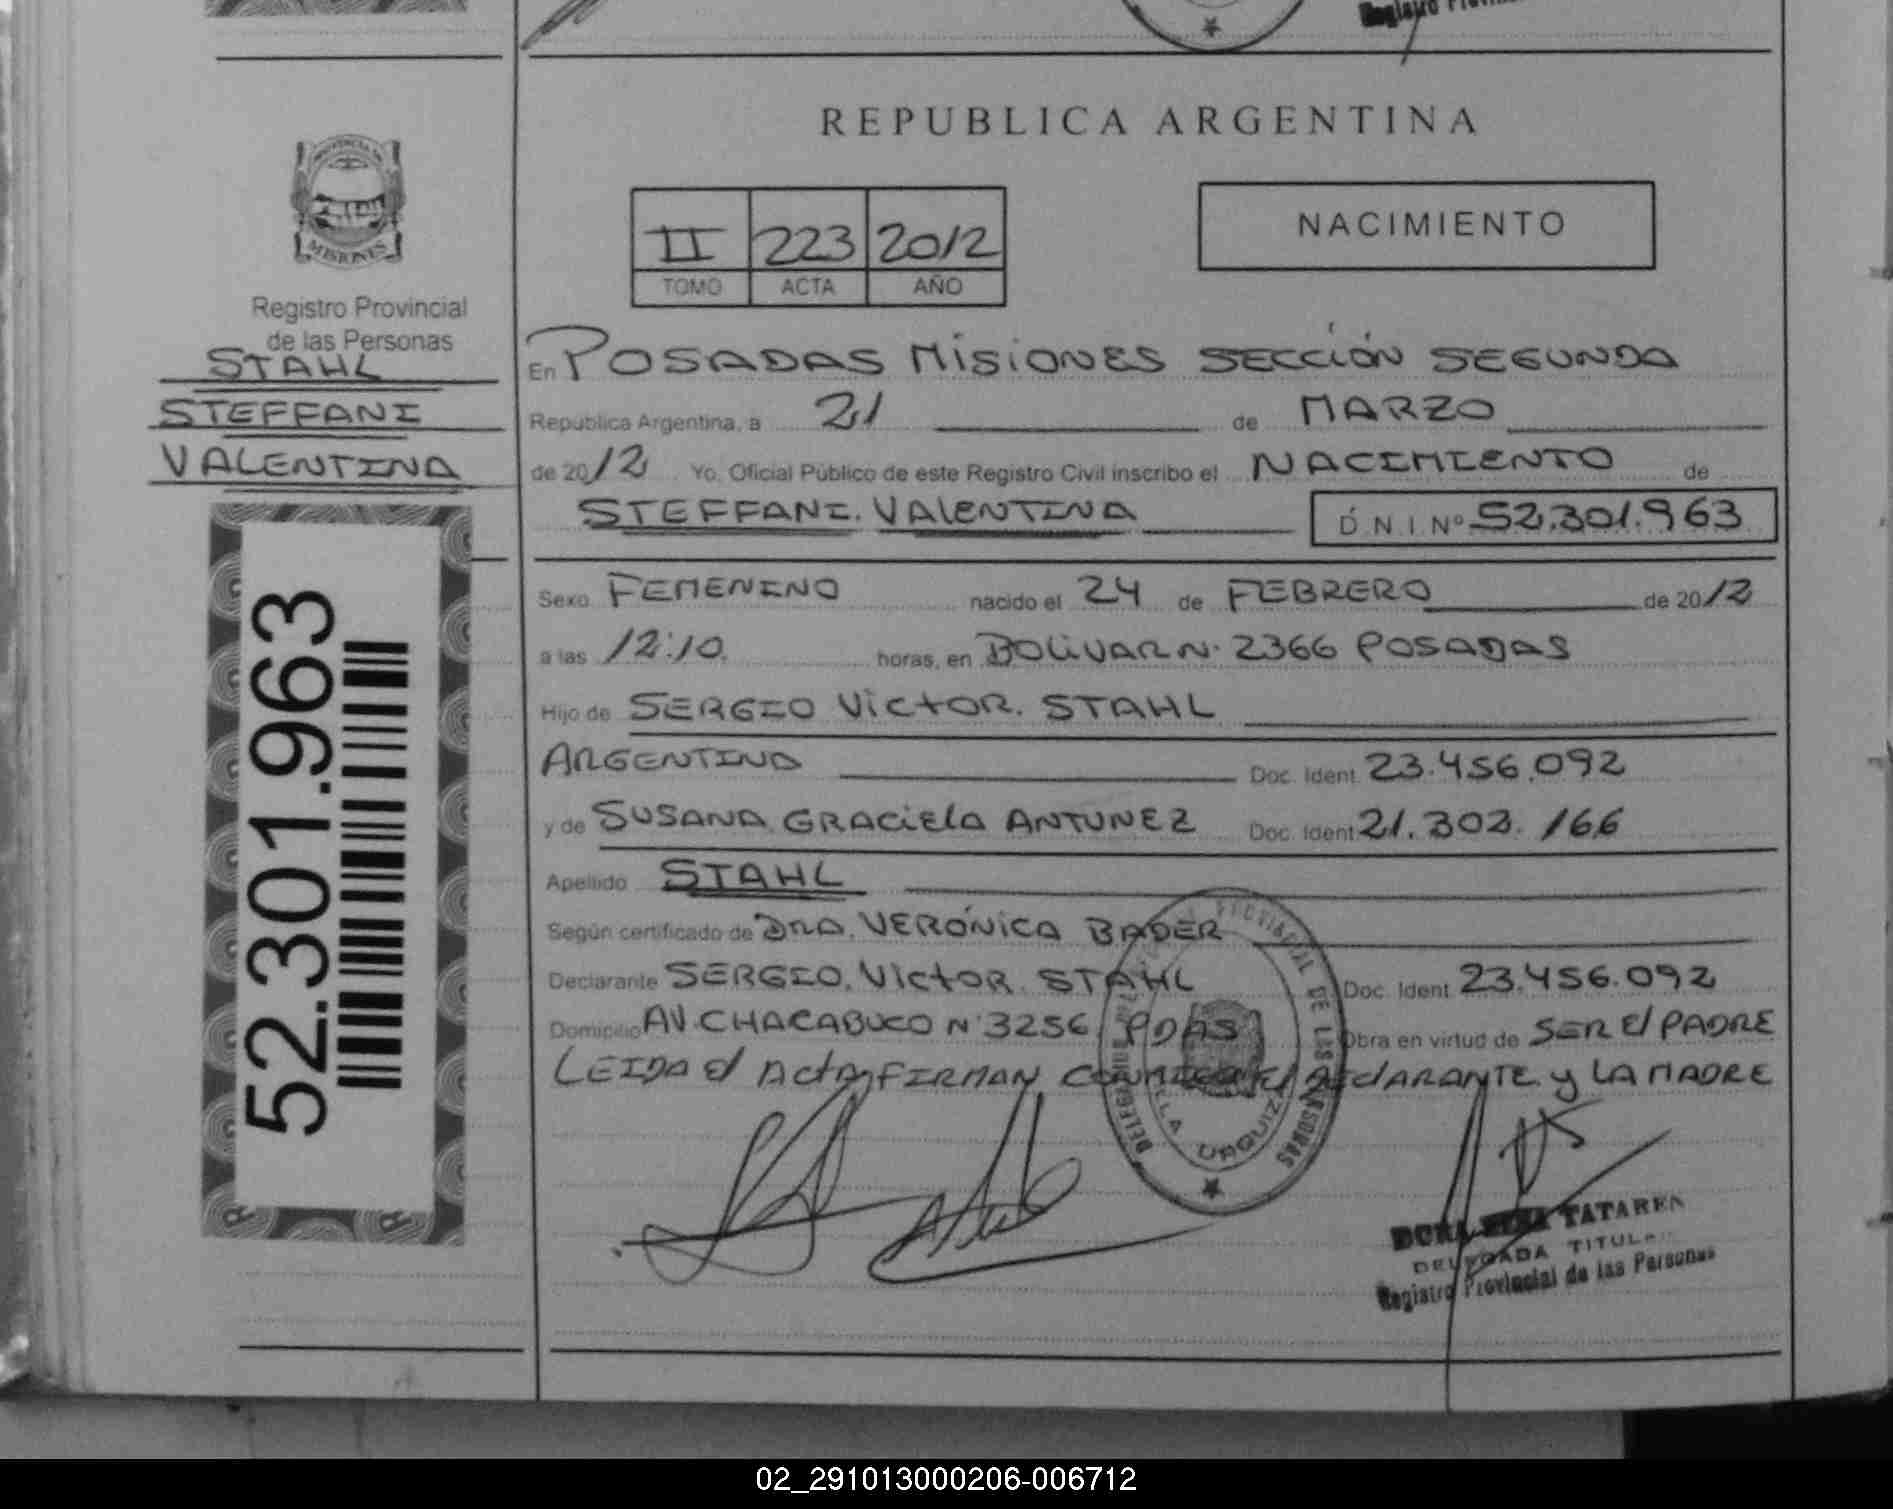 Registro Provin
REPUBLICA ARGENTINA
PROVINCIA DE
MISIONES
Registro Provincial
de las Personas
STAHL
STEFFANI
VALENTINA
52.301.963
II 223 2012
TOMO ACTA AÑO
NACIMIENTO
En POSADAS MISIONES SECCIÓN SEGUNDA
República Argentina, a 21 de MARZO
de 2012 Yo, Oficial Público de este Registro Civil inscribo el NACIMIENTO de
STEFFANI. VALENTINA D.N.I.Nº 52.301.963
Sexo FEMENINO nacido el 24 de FEBRERO de 2012
a las 12:10. horas, en BOLIVAR Nº 2366 POSADAS
Hijo de SERGIO VICTOR. STAHL
ARGENTINO Doc. Ident. 23.456.092
y de SUSANA GRACIELA ANTUNEZ Doc. Ident. 21.302.166
Apellido STAHL
Según certificado de DRA. VERÓNICA BADER
Declarante SERGIO. VICTOR. STAHL Doc. Ident. 23.456.092
Domicilio AV. CHACABUCO Nº 3256 PDAS Obra en virtud de SER El PADRE
LEIDA El ACTA, FIRMAN CONMIGO El DEClARANTE y LA MADRE
DELEGACION PROVINCIAL DE LAS PERSONAS
VILLA URQUIZA
TATAREN
DELEGADA TITULAR
Registro Provincial de las Personas
02_291013000206-006712